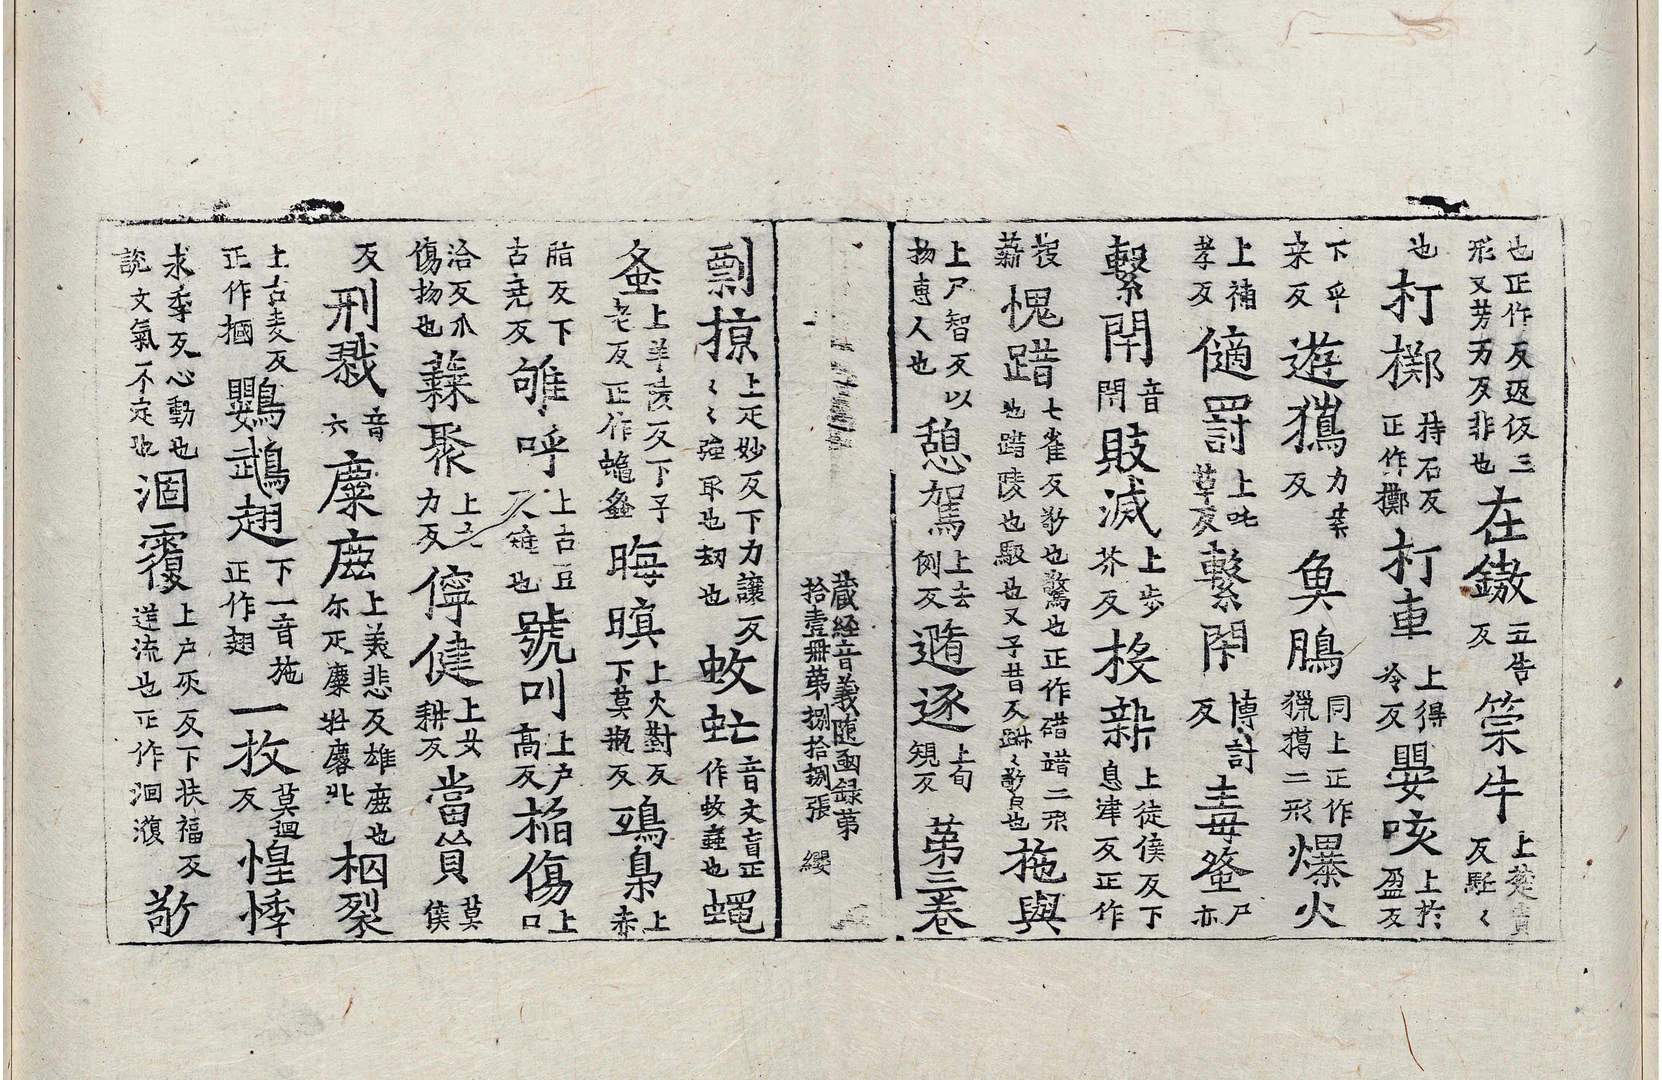 也正作反返仮三形又芳万反非也在五告反牛上楚責反
也打擲持石反正作擲打車上得冷反嬰咳上於盈反
下乎来反遊獦力葉反魚鵰同上正作獵獦二形爆火
上補孝反擿罰上吒革反繫閇博計反毒螫尸亦
繫閈音閈敗滅上步芥反新上徒侯反下息津反正作
薪愧踖七雀反敬也驚也正作碏踖二形也踖陵也又子昔反敬皃也施與
上尸智反以物惠人也憩駕上去例反遁逐上旬反第三卷
藏經音義隨函録第拾壹冊第捌拾捌張 纓
剽掠上疋妙反下力讓反〻〻強取也劫也蚊虻音文盲正作蚊䖟也蠅
蚤上羊陵反下子老反正作蠅蚤晦暝上火對反下莫瓶反鴟梟上赤
脂反下古堯反雊呼上古豆反雉也號叫上户高反掐傷上口
洽反爪傷物也聚力反儜健上女耕反當貿莫侯
反刑戮音六麋鹿上美悲反雄鹿也尒疋麋牡麔牝裂
上古麦反正作摑鸚鵡翅下一音施正作翅一枚莫迴反惶悸
求季反心動也說文氣不定也洄覆上户灰反下扶福反逆流也正作洄澓敬